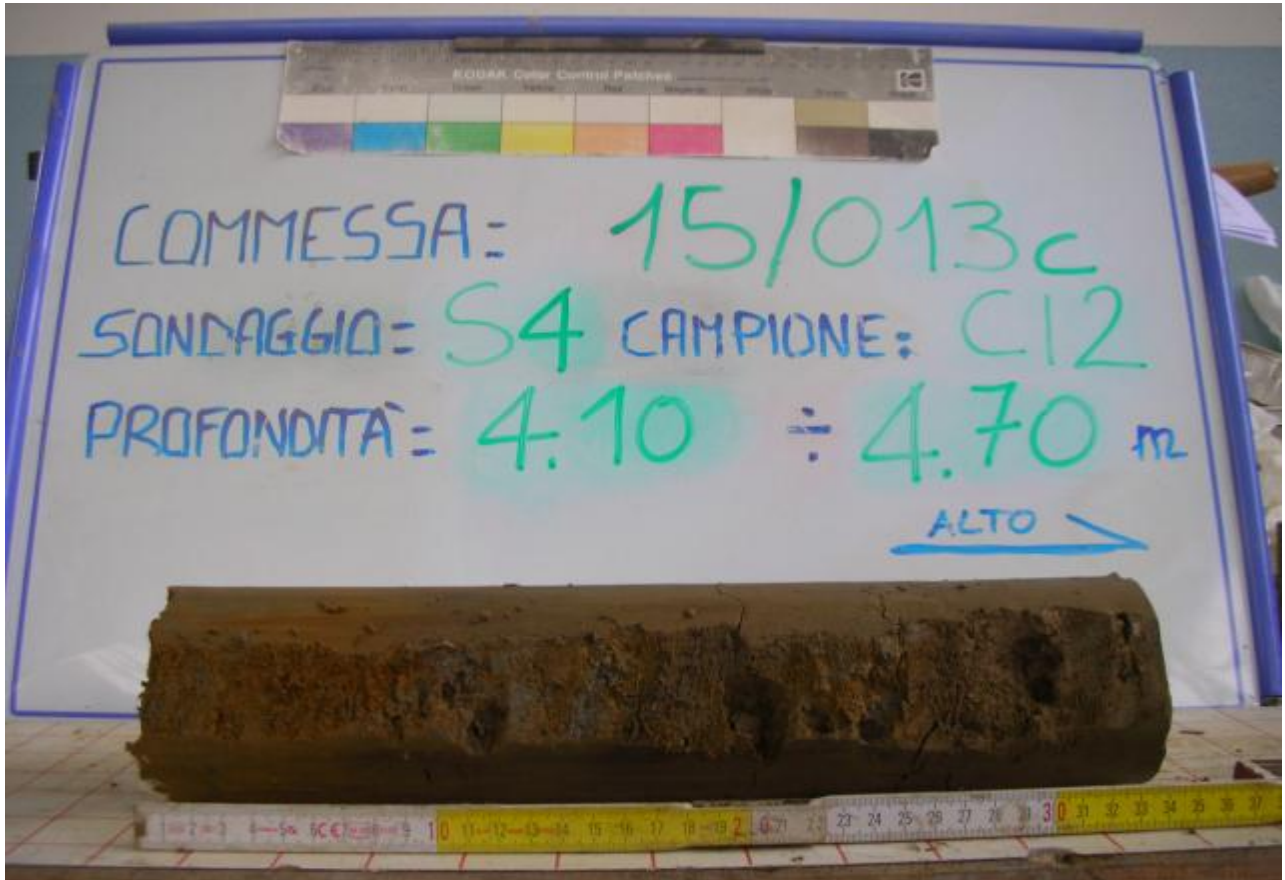 KODAK Color Control Patches
COMMESSA: 15/013c
SONDAGGIO: S4 CAMPIONE: CI2
PROFONDITÀ: 4.10 ÷ 4.70 m
ALTO
2 3 4 5 6 C€ 9 10 11 12 13 14 15 16 17 18 19 20 21 23 24 25 26 27 28 29 30 31 32 33 34 35 36 37